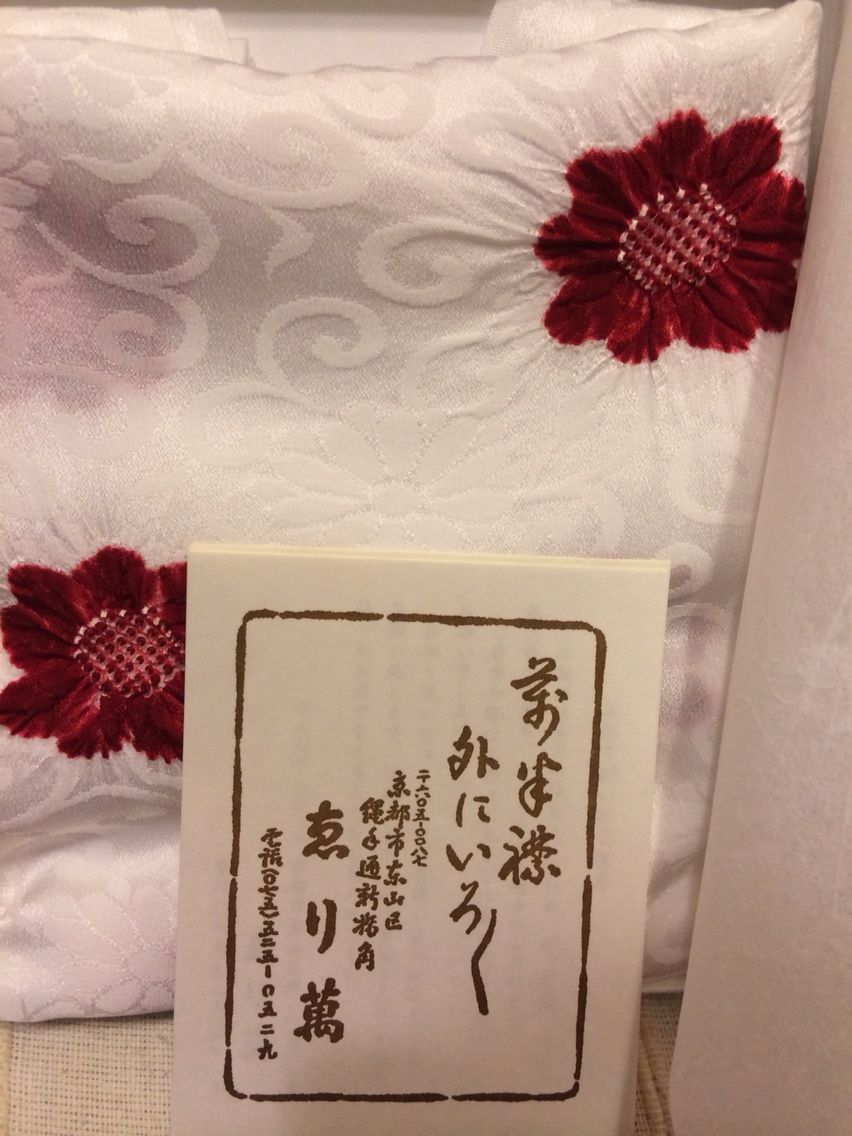 萬半襟
外にいろ〳〵
〒六〇五-〇〇八七
京都市東山区
縄手通新橋角
ゑり萬
電話(〇七五)五二五-〇五二九